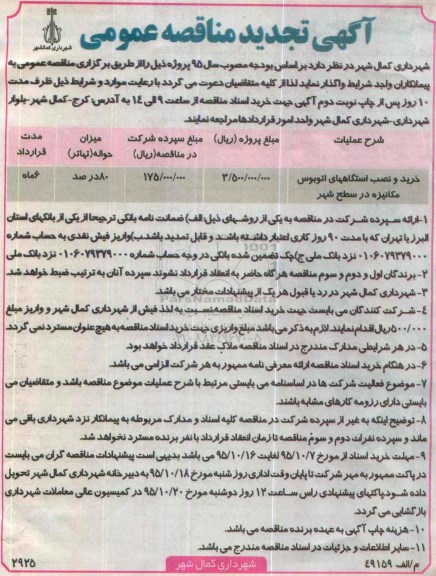 آگهی تجدید مناقصه عمومی
شهرداری کمالشهر
شهرداری کمال شهر در نظر دارد بر اساس بودجه مصوب سال ۹۵ پروژه ذیل را از طریق برگزاری مناقصه عمومی به
پیمانکاران واجد شرایط واگذار نماید لذا از کلیه متقاضیان دعوت می گردد با رعایت موارد و شرایط ذیل ظرف مدت
۱۰ روز پس از چاپ نوبت دوم آگهی جهت خرید اسناد مناقصه از ساعت ۹ الی ۱۴ به آدرس: کرج-کمال شهر-بلوار
شهرداری-شهرداری کمال شهر واحد امور قراردادها مراجعه نمایند.
شرح عملیات مبلغ پروژه (ریال) مبلغ سپرده شرکت در مناقصه(ریال) میزان حواله(تهاتر) مدت قرارداد
خرید و نصب استگاههای اتوبوس مکانیزه در سطح شهر ۳/۵۰۰/۰۰۰/۰۰۰ ۱۷۵/۰۰۰/۰۰۰ ۸۰در صد ۶ماه
۱-ارائه سپرده شرکت در مناقصه به یکی از روشهای ذیل: الف) ضمانت نامه بانکی ترجیحا از یکی از بانکهای استان
البرز یا تهران که با مدت ۹۰ روز کاری اعتبار داشته باشد و قابل تمدید باشد.ب)واریز فیش نقدی به حساب شماره
۰۱۰۶۰۷۹۳۷۹۰۰۰ نزد بانک ملی ج)چک تضمین شده بانکی در وجه حساب شماره ۰۱۰۶۰۷۹۳۷۹۰۰۰ نزد بانک ملی
۲- برندگان اول و دوم و سوم مناقصه هر گاه حاضر به انعقاد قرارداد نشوند سپرده آنان به ترتیب ضبط خواهد شد.
۳-شهرداری کمال شهر در رد یا قبول هر یک از پیشنهادات مختار می باشد.
۴-شرکت کنندگان می بایست جهت خرید اسناد مناقصه نسبت به اخذ فیش از شهرداری کمال شهر و واریز مبلغ
۵۰۰/۰۰۰ریال اقدام نمایند. لازم به ذکر می باشد مبلغ واریزی جهت خرید اسناد مناقصه به هیچ عنوان مسترد نمی گردد.
۵- در هر شرایطی مدارک مندرج در اسناد مناقصه ملاک عقد قرارداد خواهد بود.
۶-در هنگام خرید اسناد مناقصه ارائه معرفی نامه ممهور به مهر شرکت الزامی می باشد.
۷- موضوع فعالیت شرکت ها در اساسنامه می بایستی مرتبط با شرح عملیات موضوع مناقصه باشد و متقاضیان می
بایستی دارای رزومه کارهای مشابه باشند.
۸- توضیح اینکه به غیر از سپرده شرکت در مناقصه کلیه اسناد و مدارک مربوطه به پیمانکار نزد شهرداری باقی می
ماند و سپرده نفرات دوم و سوم مناقصه تا زمان انعقاد قرارداد با نفر برنده مسترد نخواهد شد.
۹- مهلت خرید اسناد از مورخ ۹۵/۱۰/۷ لغایت ۹۵/۱۰/۱۶ می باشد بدیهی است پیشنهادات مناقصه گران می بایست
در پاکت ممهور به مهر شرکت تا پایان وقت اداری روز شنبه مورخ ۹۵/۱۰/۱۸ به دبیر خانه شهرداری کمال شهر تحویل
داده شود.پاکتهای پیشنهادی راس ساعت ۱۲ روز دوشنبه مورخ ۹۵/۱۰/۲۰ در کمیسیون عالی معاملات شهرداری
بازگشایی می گردد.
۱۰-هزینه چاپ آگهی به عهده برنده مناقصه می باشد.
۱۱- سایر اطلاعات و جزئیات در اسناد مناقصه مندرج می باشد.
م/الف ۴۹۱۵۹ شهرداری کمال شهر ۲۹۲۵